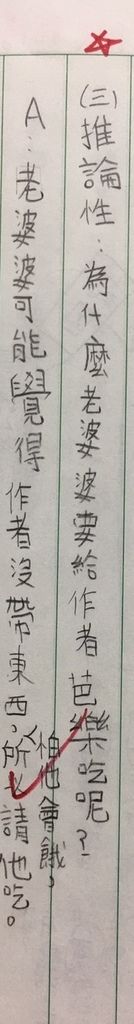 (三)推論性：為什麼老婆婆要給作者芭樂吃呢？
A：老婆婆可能覺得作者沒帶東西，怕他會餓，所以請他吃。